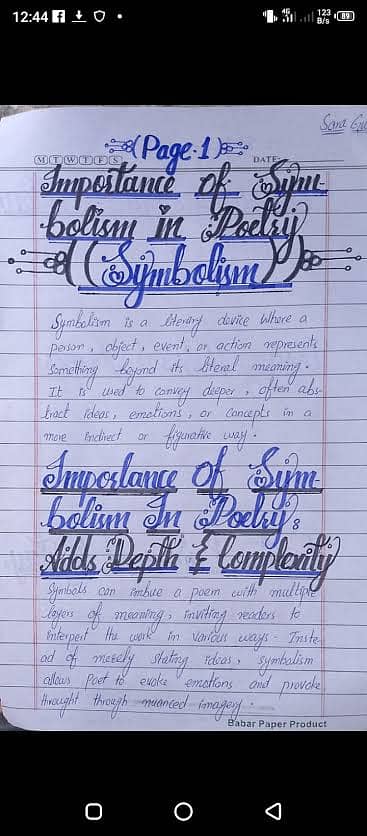 12:44
4G
123 B/s
89
Sara
(Page-1)
M T W T F S
DATE:
Importance of Sym
bolism in Poetry
((Symbolism))
Symbolism is a literary device where a
person, object, event, or action represents
Something beyond its literal meaning.
It is used to convey deeper, often abs-
tract ideas, emotions, or concepts in a
more indirect or figurative way.
Importance Of Sym-
bolism In Poetry:
Adds Depth & Complexity
Symbols can imbue a poem with multiple
layers of meaning, inviting readers to
interpert the work in various ways. Inste-
ad of merely stating ideas, symbolism
allows Poet to evoke emotions and provoke
throught through nuanced imagery.
Babar Paper Product